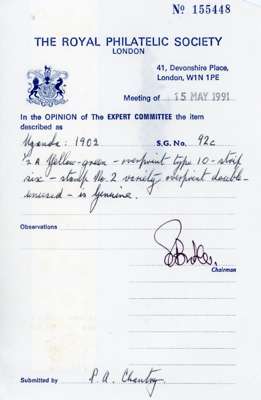 Nº 155448
THE ROYAL PHILATELIC SOCIETY
LONDON
41, Devonshire Place,
London, W1N 1PE
Meeting of 15 MAY 1991
In the OPINION of The EXPERT COMMITTEE the item
described as
Uganda: 1902 S.G. No. 92c
½A Yellow-green - overprint type 10 - strip
six - stamp No. 2 variety, overprint double -
unused - is genuine.
Observations
Chairman
Submitted by P. A. Chantry.